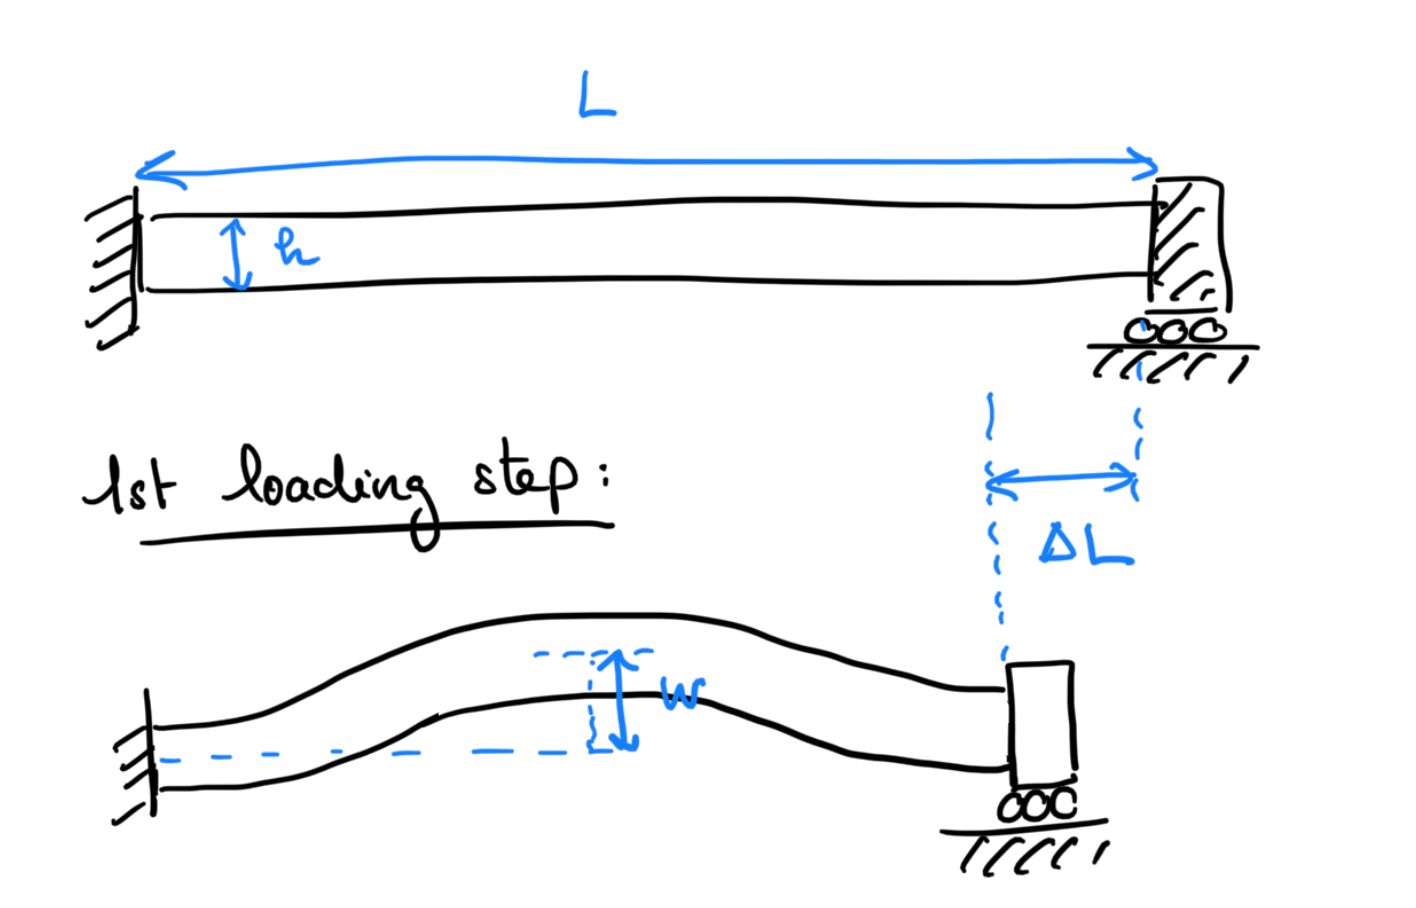 L
h
1st loading step:
ΔL
w